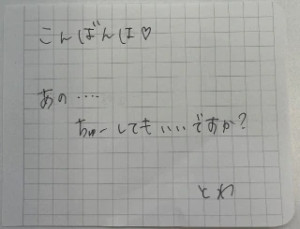 こんばんは♡
あの....
ちゅーしてもいいですか?
とわ